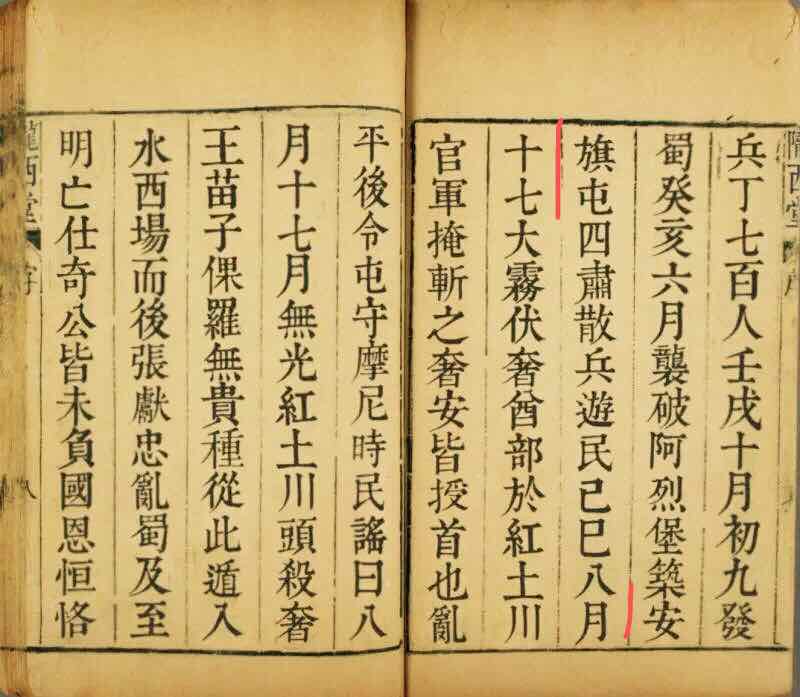 兵丁七百人壬戌十月初九發
蜀癸亥六月襲破阿烈堡築安
旗屯四肅散兵遊民己巳八月
十七大霧伏奢酋部於紅土川
官軍掩斬之奢安皆授首也亂
平後令屯守摩尼時民謠曰八
月十七月無光紅土川頭殺奢
王苗子倮羅無貴種從此遁入
水西場而後張獻忠亂蜀及至
明亡仕奇公皆未負國恩恒恪